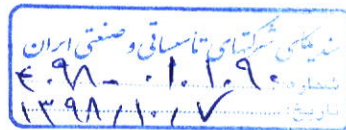 سندیکای شرکتهای تأسیساتی و صنعتی ایران
شماره: ۴۰۹۸-۰۱.۱.۹۰
تاریخ: ۱۳۹۸/۱۰/۷